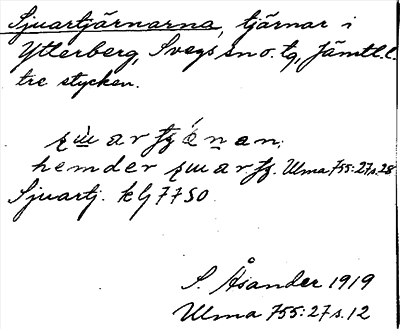 Sjuartjärnarna, tjärnar i
Ytterberg, Svegs sn o. tg, Jämtl. l.
tre stycken.
hemder
Ulma 755:27 s. 28
Sjuartj. klj 7750
S. Åsander 1919
Ulma 755:27 s. 12